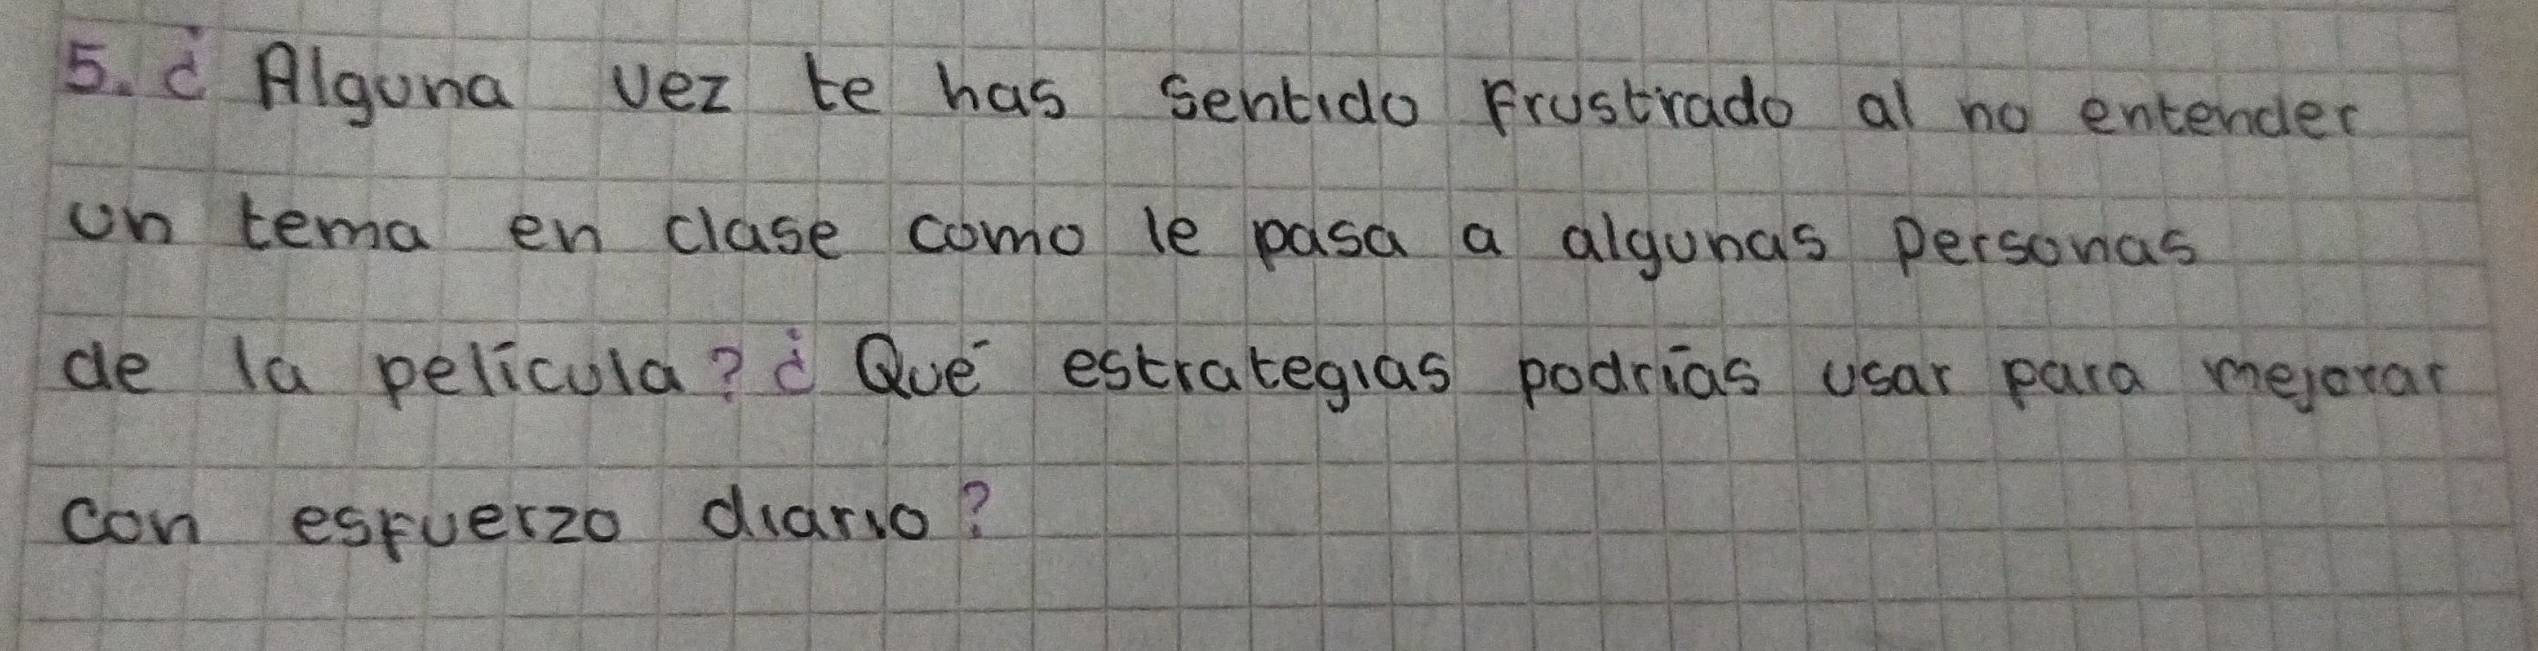 5. ¿Alguna vez te has sentido frustrado al no entender
un tema en clase como le pasa a algunas personas
de la película? ¿Qué estrategias podrías usar para mejorar
con esfuerzo diario?